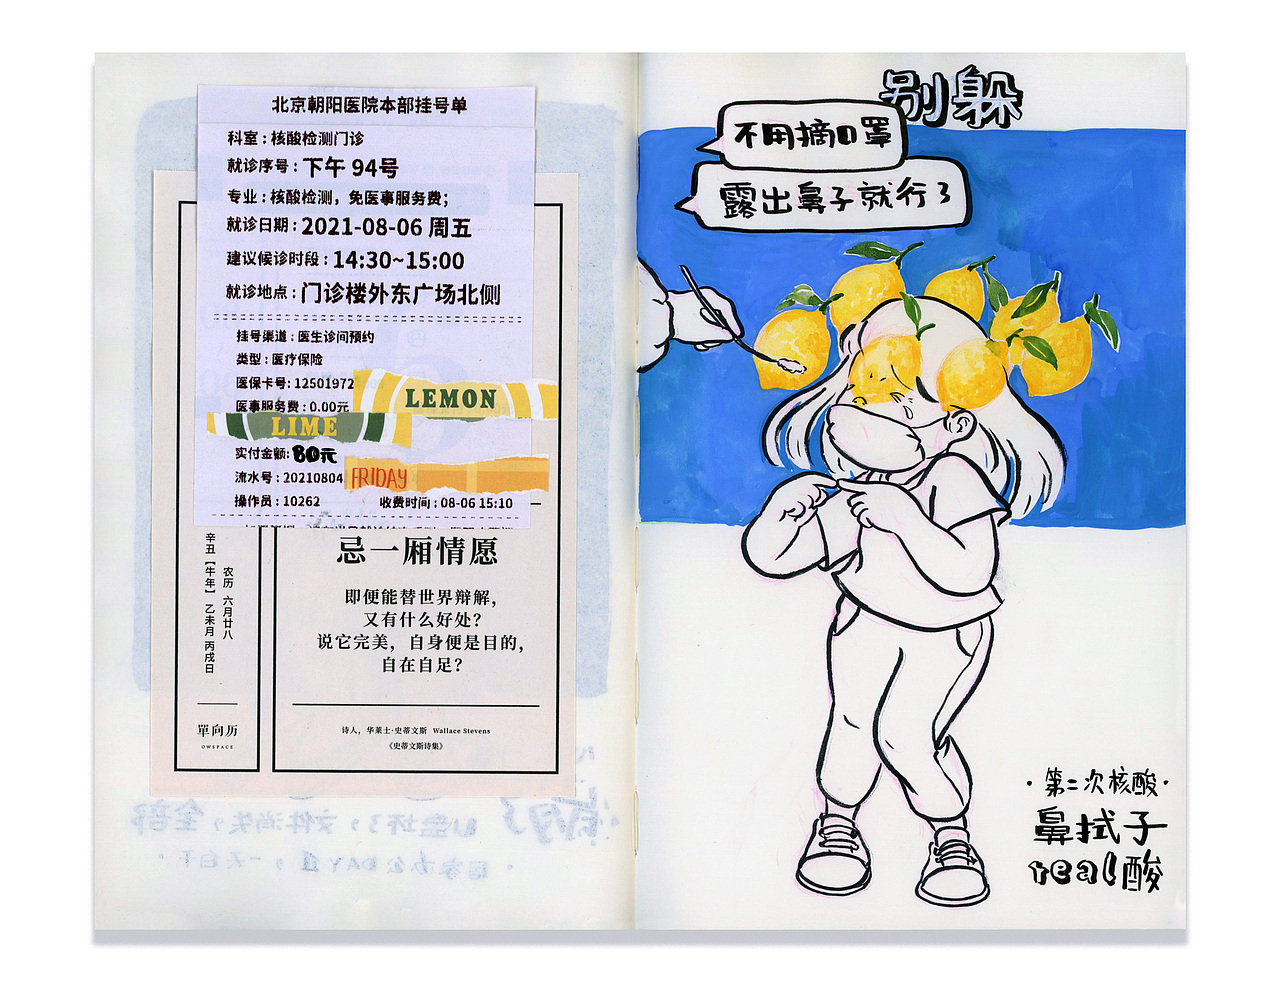 北京朝阳医院本部挂号单
科室：核酸检测门诊
就诊序号：下午 94号
专业：核酸检测，免医事服务费；
就诊日期：2021-08-06 周五
建议候诊时段：14:30~15:00
就诊地点：门诊楼外东广场北侧
挂号渠道：医生诊间预约
类型：医疗保险
医保卡号：12501972
医事服务费：0.00元
LEMON
LIME
实付金额：80元
流水号：20210804
FRIDAY
操作员：10262 收费时间：08-06 15:10
忌一厢情愿
即便能替世界辩解，
又有什么好处？
说它完美，自身便是目的，
自在自足？
诗人，华莱士·史蒂文斯 Wallace Stevens
《史蒂文斯诗集》
农历 六月廿八
辛丑【牛年】乙未月 丙戌日
單向历
OWSPACE
别躲
不用摘口罩
露出鼻子就行了
·第二次核酸·
鼻拭子
real酸